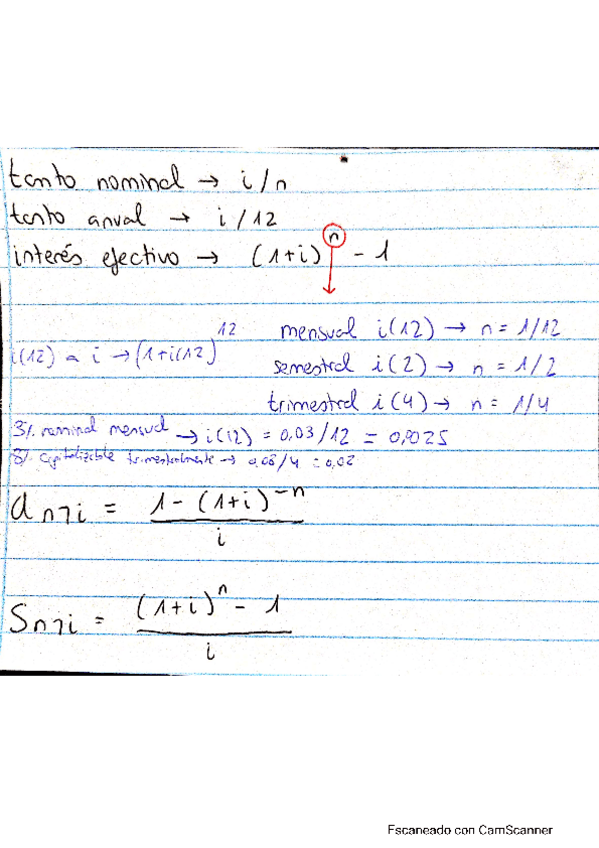 tanto nominal → i/n
tanto anual → i/12
interés efectivo → (1+i)^n - 1
mensual i(12) → n = 1/12
i(12) a i → (1+i(12)^12
semestral i(2) → n = 1/2
trimestral i(4) → n = 1/4
3%. nominal mensual → i(12) = 0,03/12 = 0,0025
8%. capitalizable trimestralmente → 0,08/4 = 0,02
a n¬i = 1 - (1+i)^-n / i
S n¬i = (1+i)^n - 1 / i
Escaneado con CamScanner